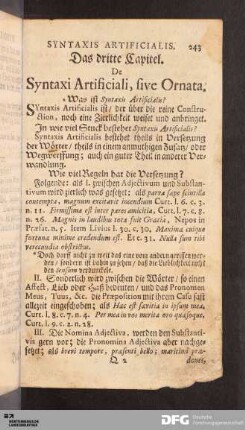 SYNTAXIS ARTIFICIALIS. 243
Das dritte Capitel.
De
Syntaxi Artificiali, sive Ornata.
Was ist Syntaxis Artificialis?
Syntaxis Artificialis ist / der über die reine Construction,
noch eine Zierlichkeit weiset und anbringet.
In wie viel Stück bestehet Syntaxis Artificialis?
Syntaxis Artificialis bestehet theils in Versetzung
der Wörter / theils in einem anmuthigen Zusatz / oder
Wegwerffung; auch ein guter Theil in anderer Verwandlung.
Wie viel Regeln hat die Versetzung?
Folgende: als I. zwischen Adjectivum und Substantivum
wird zierlich was gesetzt; als parva sæpe scintilla
contempta, magnum excitavit incendium Curt. l. 6. c. 3.
n. 11. Firmissima est inter pares amicitia, Curt. l. 7. c. 8.
n. 26. Magnis in laudibus tota fuit Græcia, Nepos in
Præfat. n. 5. Item Livius l. 30. c. 30. Maximæ cuique
fortunæ minime credendum est. Et c. 31. Nulla sum tibi
verecundia obstrictus.
Doch darff nicht zu weit das eine vom andern versetzt werden /
II. Sonderlich wird zwischen die Wörter / so einen
Affect, Lieb oder Haß bedeuten / und das Pronomen
Meus, Tuus, &c. die Præposition mit ihrem Casu fast
allezeit eingeschoben; als Hæc est sævitia in ipsum mea,
Curt. l. 8. c. 7. n. 4. Per mea in vos merita
Curt. l. 9. c. 2. n. 28.
III. Die Nomina Adjectiva, werden den Substantivis
gern vor; die Pronomina Adjectiva aber nachgesetzet;
als brevi tempore, præsenti bello; maritimâ præ-
Q 2
DFG
Deutsche
Forschungsgemeinschaft